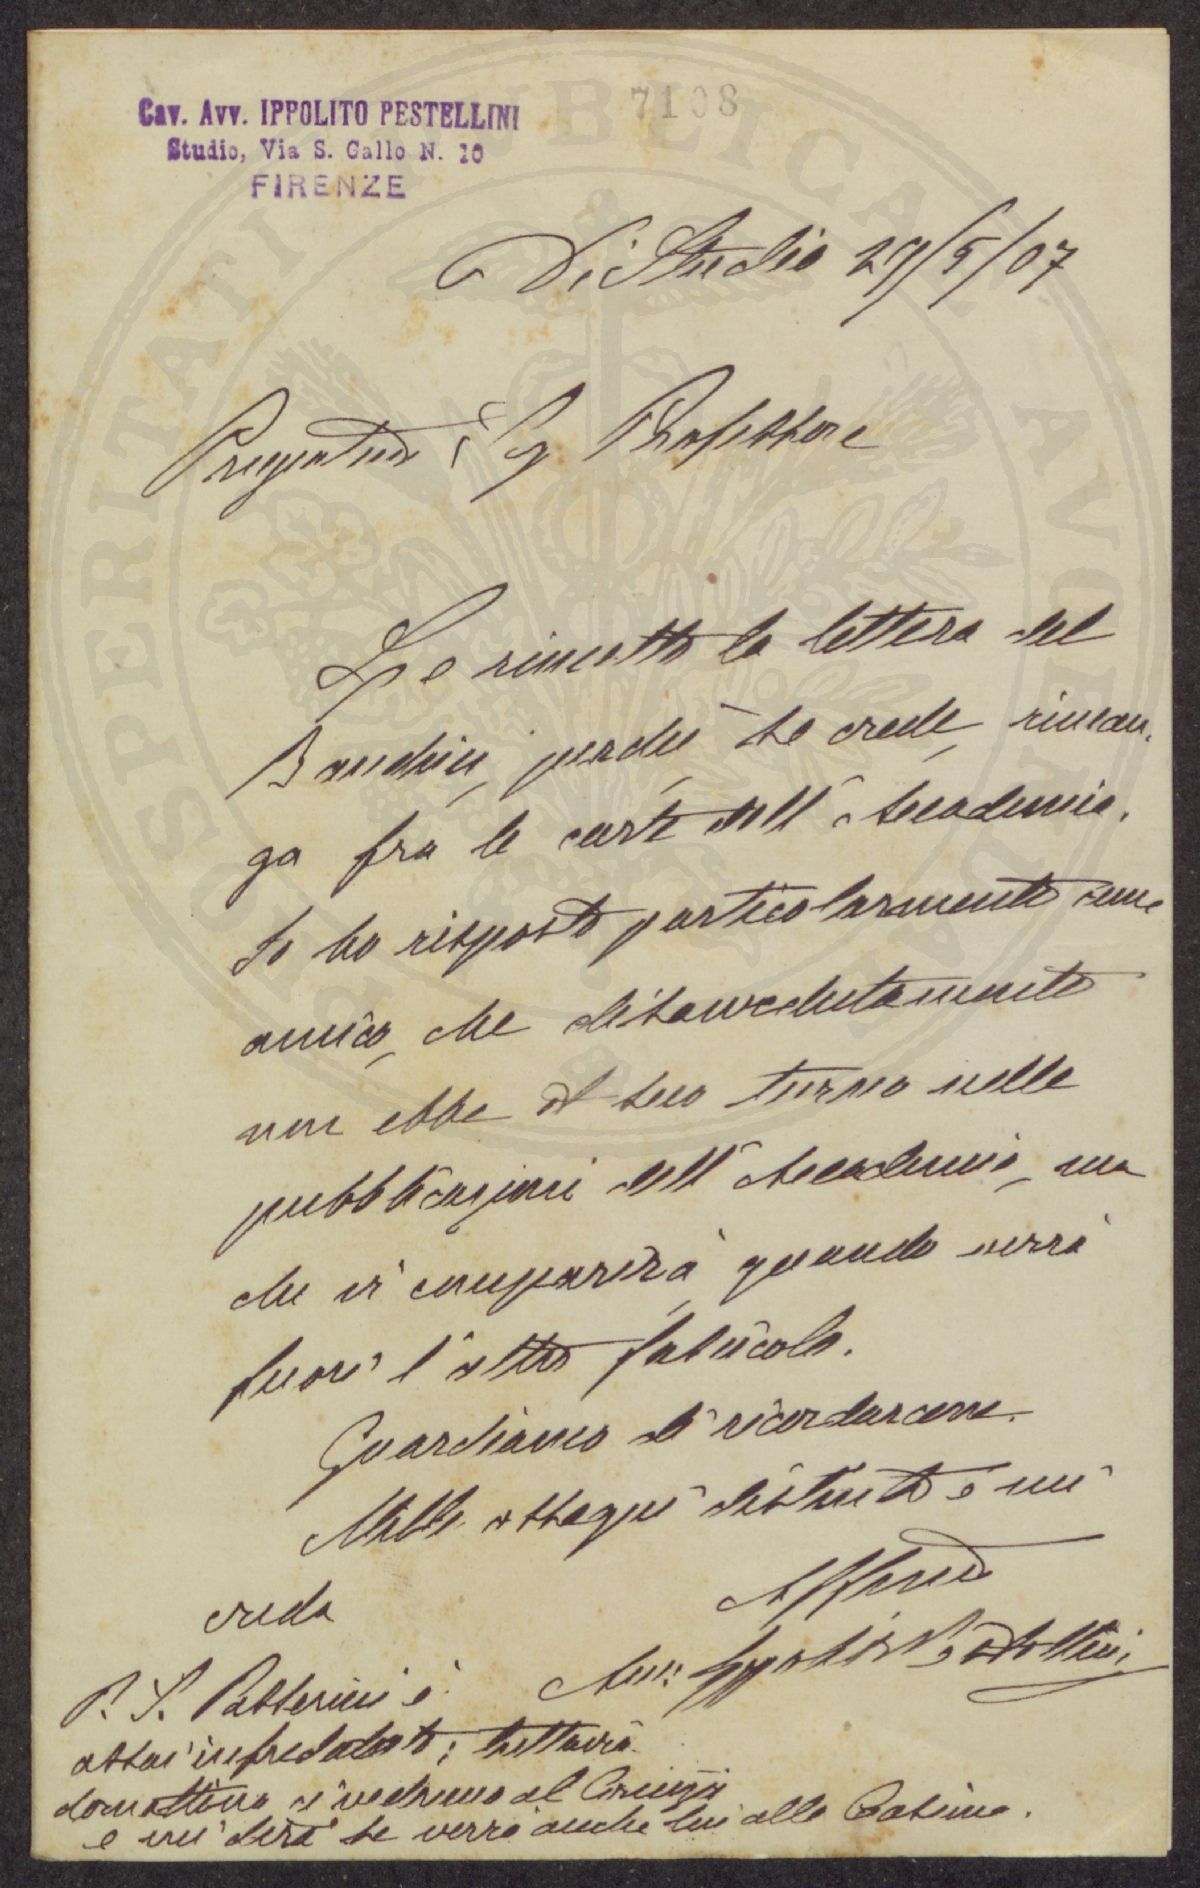 7108
Cav. Avv. IPPOLITO PESTELLINI
Studio, Via S. Gallo N. 10
FIRENZE
Di Studio 29/5/07
Pregiatmo Sig Professore
Le rimetto la lettera del
Bandini, perchè se crede, riman-
ga fra le carte dell'Accademia.
Io ho risposto particolarmente come
amico, che disavvedutamente
non ebbe il suo turno nelle
pubblicazioni dell'Accademia, ma
che vi comparirà quando verrà
fuori l'altro fascicolo.
Guardiamo di ricordarcene.
Mille ossequi distinti e mi
creda
Affmo
Avv. Ippolito Pestellini
P. S. Passerini è
assai infreddato; tuttavia
domattina ci vedremo al
e mi dirà se verrà anche lui alle Cascine.
PROSPERITATI PUBLICAE AVGENDAE